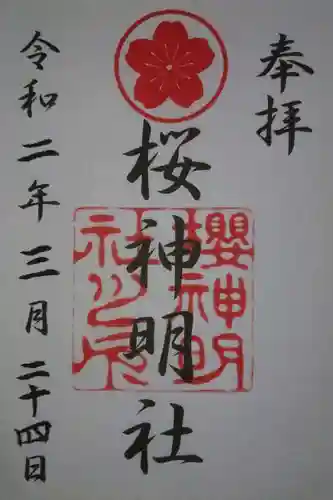 奉拝
桜神明社
櫻神明
社之印
令和二年三月二十四日